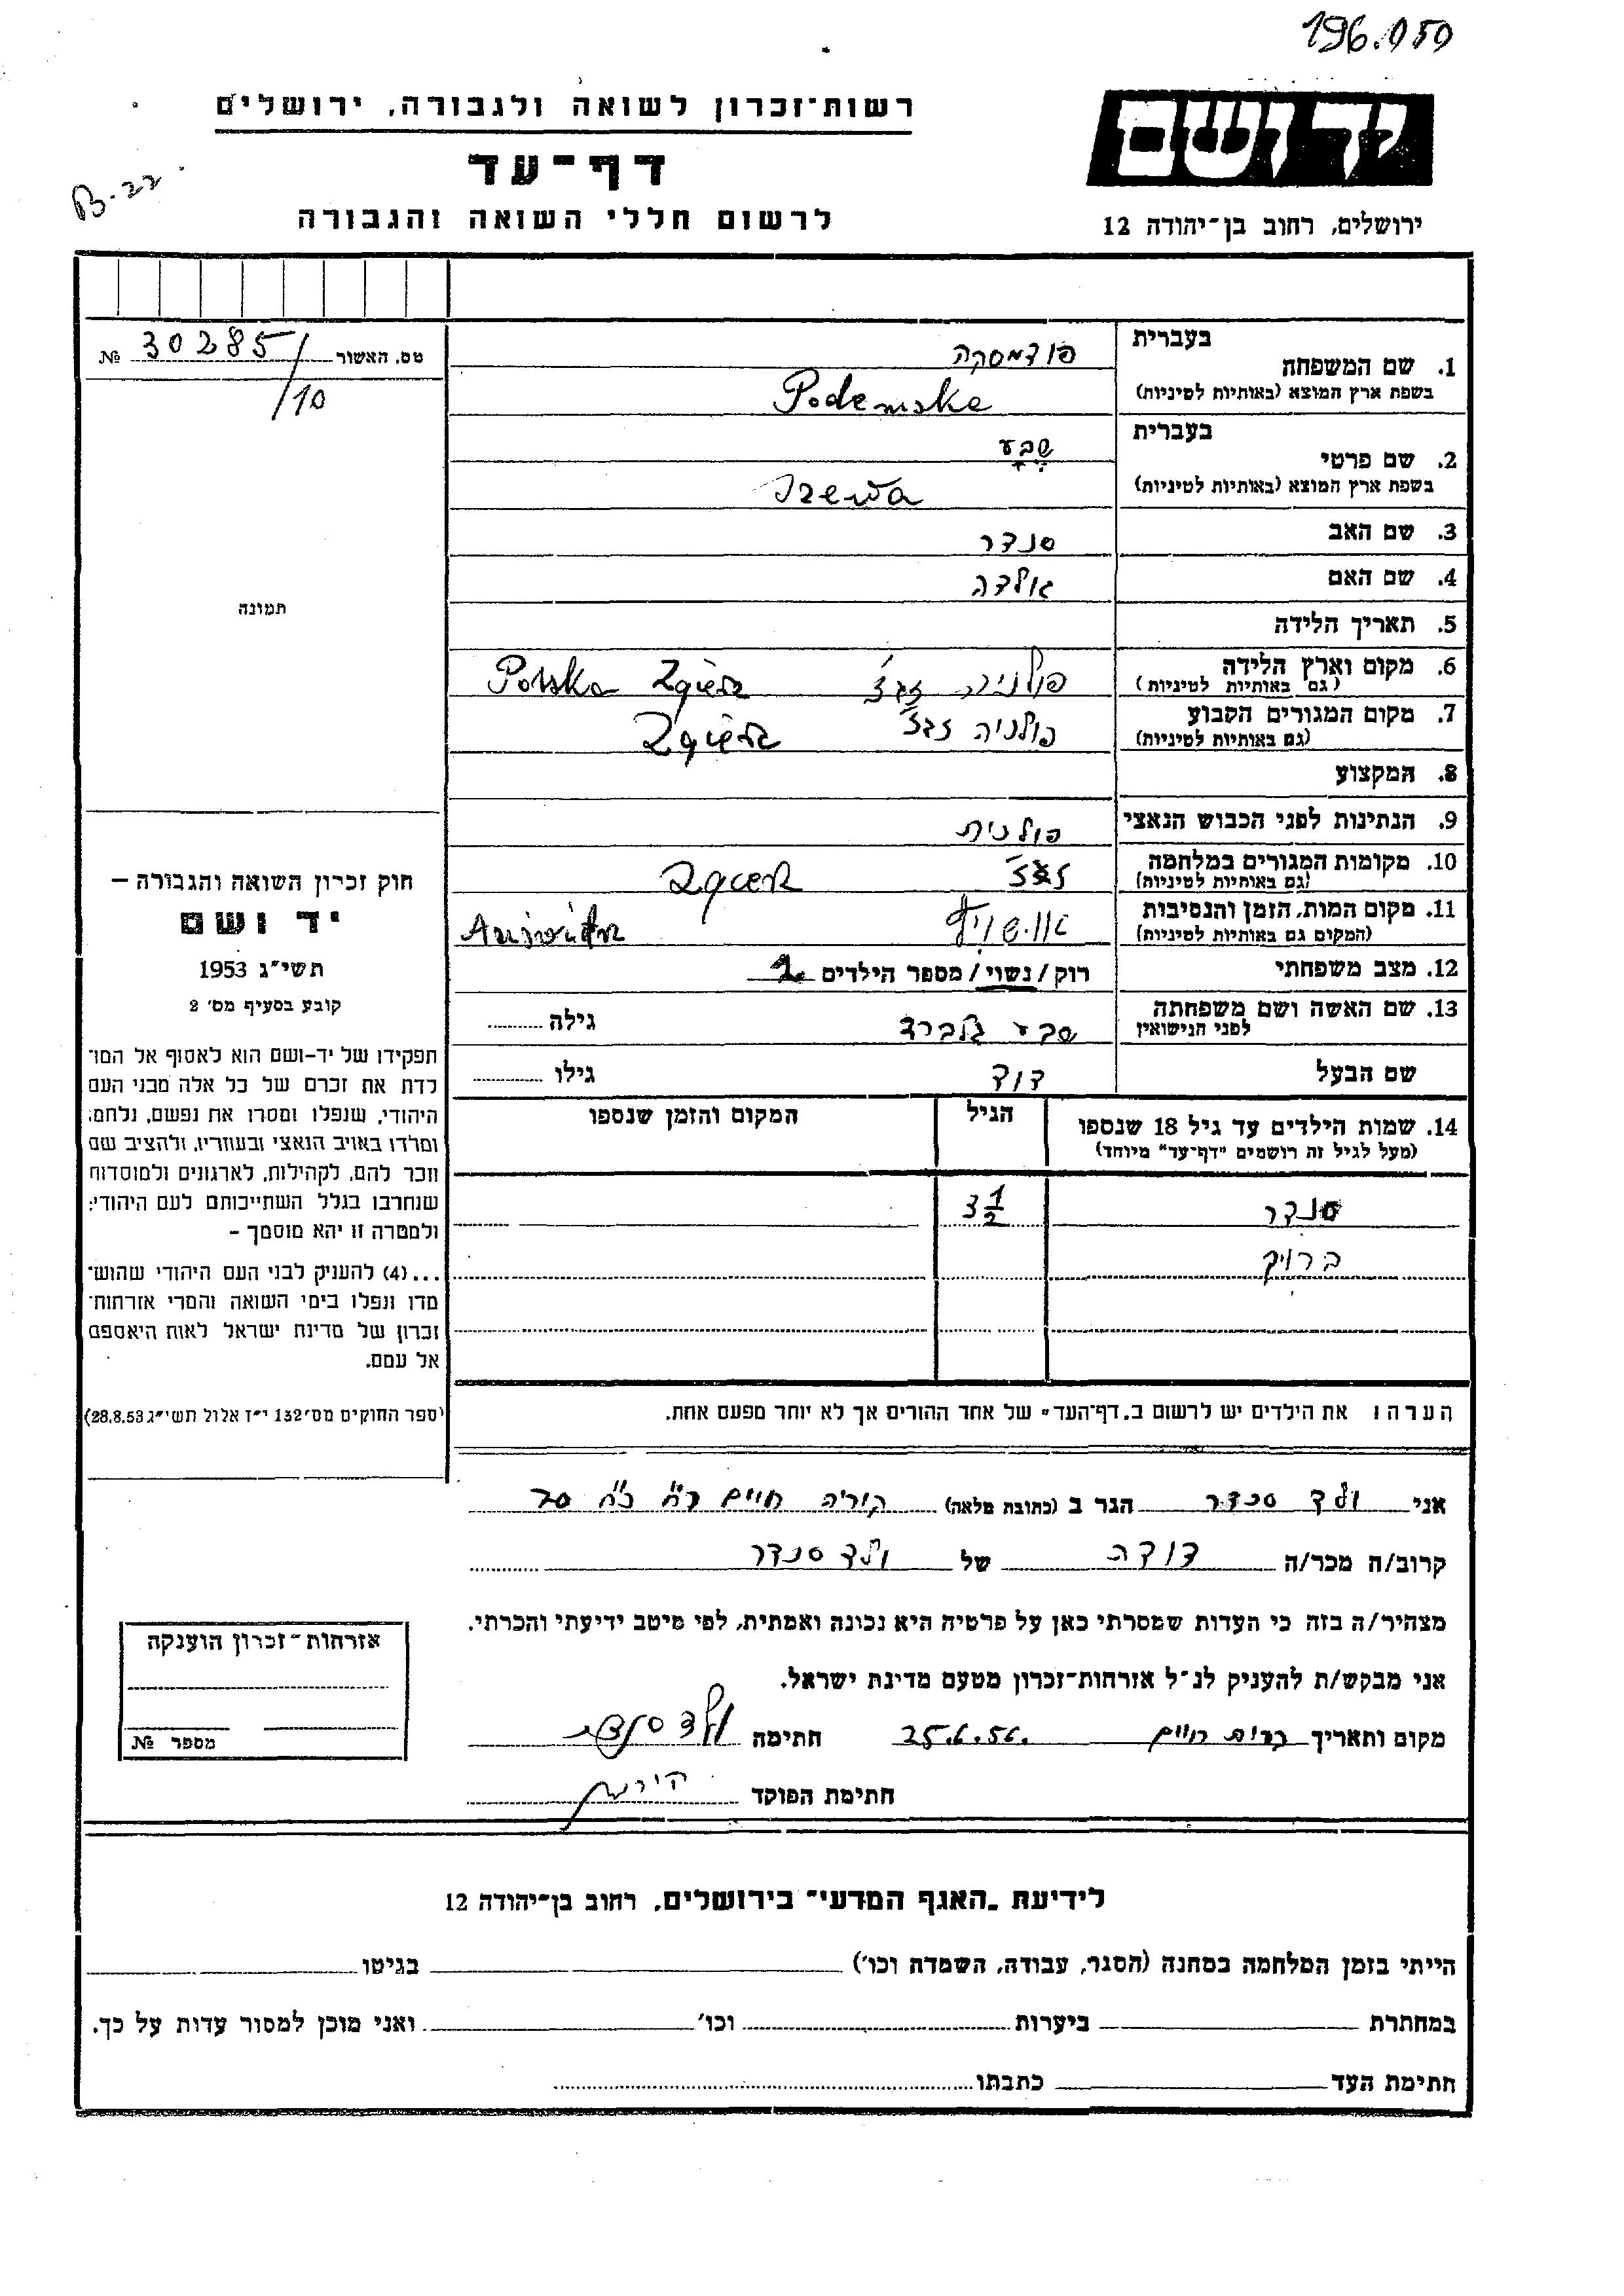 196.050
רשות־זכרון לשואה ולגבורה, ירושלים
יד ושם
דף־עד
B-22
לרשום חללי השואה והגבורה
ירושלים, רחוב בן־יהודה 12
בעברית
פודמסקה
מס. האשור 30285/10 №
1. שם המשפחה
בשפת ארץ המוצא (באותיות לטיניות) Podemska
בעברית
שבע
2. שם פרטי
בשפת ארץ המוצא (באותיות לטיניות)
3. שם האב סנדר
4. שם האם
5. תאריך הלידה
תמונה
6. מקום וארץ הלידה פולניה זגז' Polska Zgierz
(גם באותיות לטיניות)
7. מקום המגורים הקבוע פולניה זגז' Zgierz
(גם באותיות לטיניות)
8. המקצוע
9. הנתינות לפני הכבוש הנאצי פולנית
10. מקומות המגורים במלחמה Zgierz
(גם באותיות לטיניות)
11. מקום המות, הזמן והנסיבות אושויץ
(המקום גם באותיות לטיניות)
12. מצב משפחתי רוק / נשוי / מספר הילדים
13. שם האשה ושם משפחתה גילה
לפני הנישואין
שם הבעל דוד גילו
14. שמות הילדים עד גיל 18 שנספו הגיל המקום והזמן שנספו
(מעל לגיל זה רושמים "דף־עד" מיוחד)
סנדר 3 1/2
ברוך
הערה: את הילדים יש לרשום ב„דף־העד" של אחד ההורים אך לא יותר מפעם אחת.
חוק זכרון השואה והגבורה –
יד ושם
תשי"ג 1953
קובע בסעיף מס' 2
תפקידו של יד-ושם הוא לאסוף אל המו־
לדת את זכרם של כל אלה מבני העם
היהודי, שנפלו ומסרו את נפשם, נלחמו
ומרדו באויב הנאצי ובעוזריו, ולהציב שם
וזכר להם, לקהילות, לארגונים ולמוסדות
שנחרבו בגלל השתייכותם לעם היהודי;
ולמטרה זו יהא מוסמך –
...(4) להעניק לבני העם היהודי שהוש־
מדו ונפלו בימי השואה והמרי אזרחות־
זכרון של מדינת ישראל לאות היאספם
אל עמם.
(ספר החוקים מס' 132 י"ז אלול תשי"ג 28.8.53)
אני ולד סנדר הגר ב (כתובת מלאה) קרית חיים
קרוב/ה מכר/ה דודה של ולד סנדר
מצהיר/ה בזה כי העדות שמסרתי כאן על פרטיה היא נכונה ואמתית, לפי מיטב ידיעתי והכרתי.
אני מבקש/ת להעניק לנ"ל אזרחות־זכרון מטעם מדינת ישראל.
מקום ותאריך קרית חיים 25.6.56. חתימה ולד סנדר
חתימת הפוקד
אזרחות־זכרון הוענקה
מספר №
לידיעת „האגף המדעי" בירושלים, רחוב בן־יהודה 12
הייתי בזמן המלחמה במחנה (הסגר, עבודה, השמדה וכו') בגיטו
במחתרת ביערות וכו' ואני מוכן למסור עדות על כך.
חתימת העד כתבתו